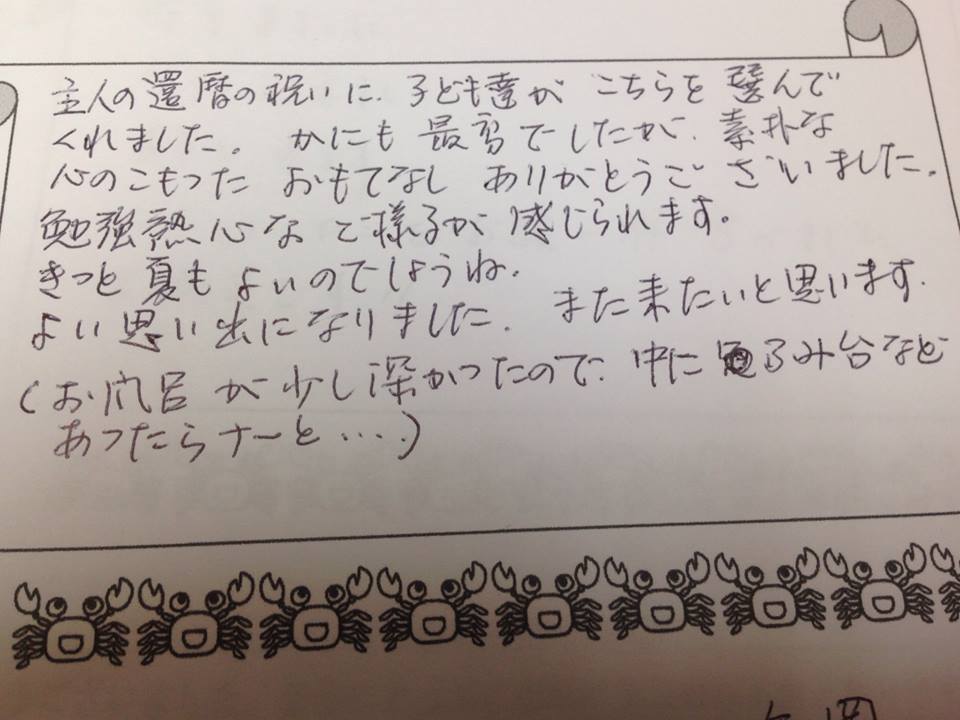 主人の還暦の祝いに、子ども達が こちらを 選んで
くれました。 かにも 最高でしたが、素朴な
心のこもった おもてなし ありがとうご ざいました。
勉強熱心な ご様子が 感じられます。
きっと 夏も よいのでしょうね。
よい思い出になりました。 また来たいと思います。
(お風呂 が 少し深かったので、中に ふみ台など
あったらナーと・・・・)